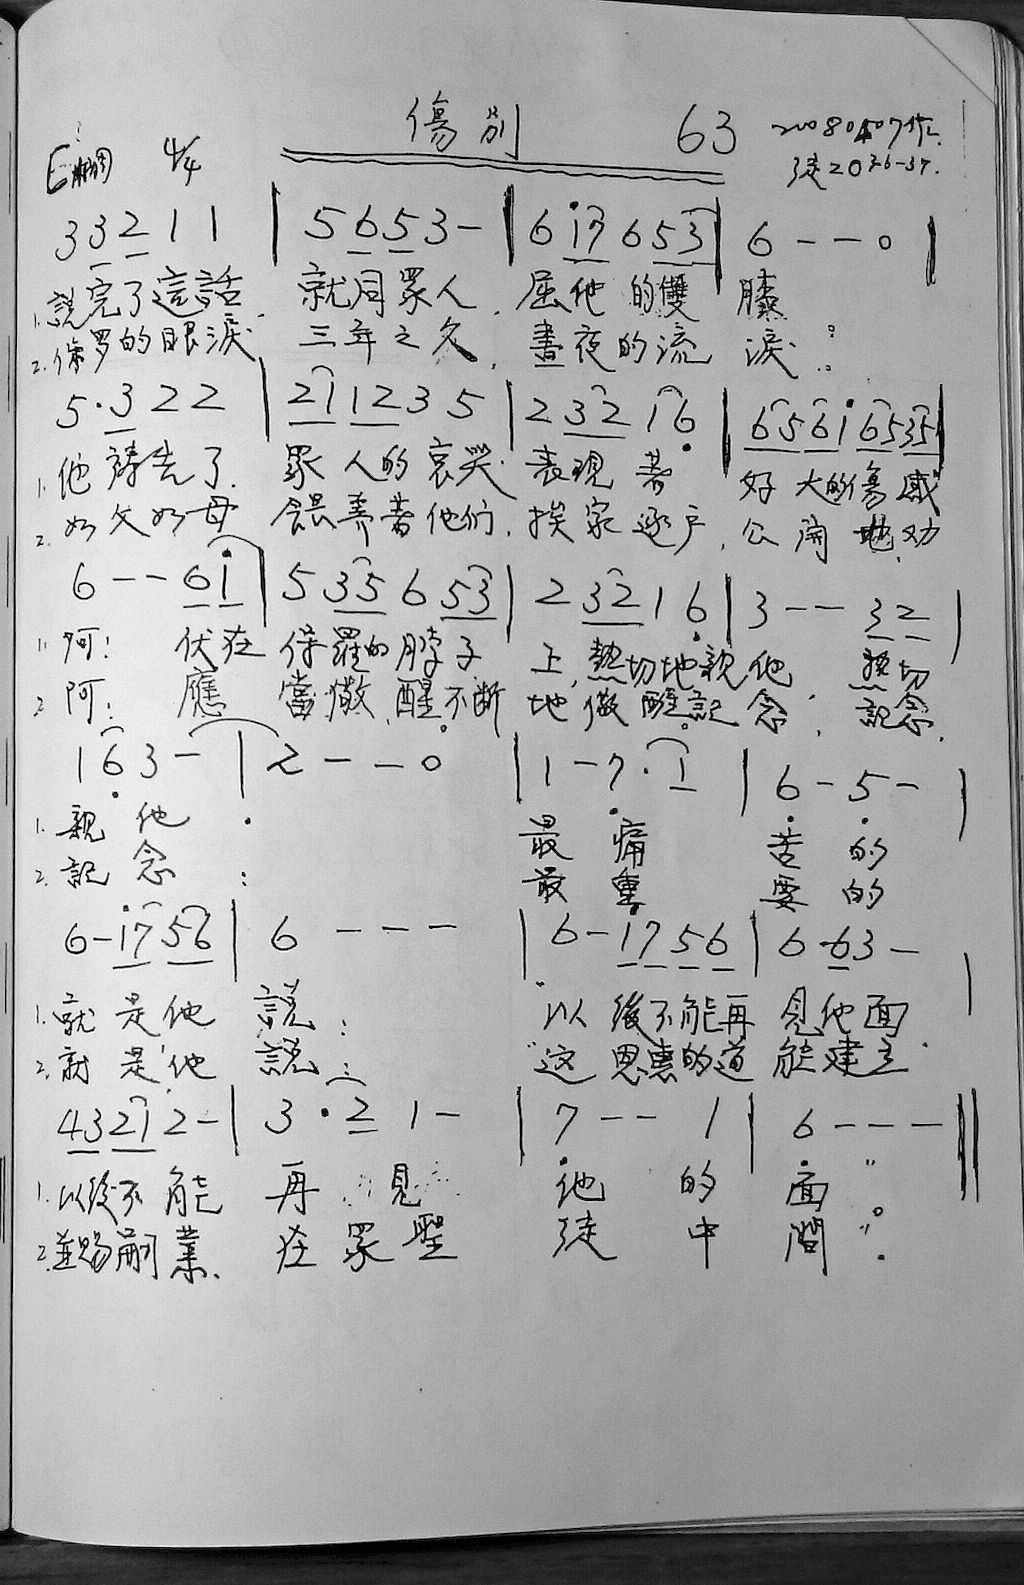 傷別 63 20080407作
E調 4/4 徒20 36-37.
3 3 2 1 1 | 5 6 5 3 - | 6 i 7 6 5 3 | 6 - - 0 |
1. 說完了這話. 就同眾人, 屈他的雙膝
2. 保罗的眼淚 三年之久, 晝夜的流淚:
5 · 3 2 2 | 2 1 1 2 3 5 | 2 3 2 1 6 | 6 5 6 i 6 5 3 5 |
1. 他禱告了. 眾人的哀哭. 表現著 好大的傷感
2. 如父如母 餵养著他們, 挨家逐戶, 公開地劝
6 - - 6 i | 5 3 5 6 5 3 | 2 3 2 1 6 | 3 - - 3 2 |
1. 阿! 伏在保羅的脖子上, 熱切地親他 熱切
2. 阿! 應當儆醒不断地儆醒記念; 記念,
1 6 3 - | 2 - - 0 | 1 - 7 · 1 | 6 - 5 - |
1. 親他. 最痛苦的
2. 記念: 最重要的
6 - i 7 5 6 | 6 - - - | 6 - i 7 5 6 | 6 - 6 3 - |
1. 就是他說: "以後不能再見他面
2. 就是他說: "这恩惠的道能建立
4 3 2 1 2 - | 3 · 2 1 - | 7 - - 1 | 6 - - - ||
1. 以後不能再見他的面"。
2. 並賜嗣業. 在眾聖徒中間".